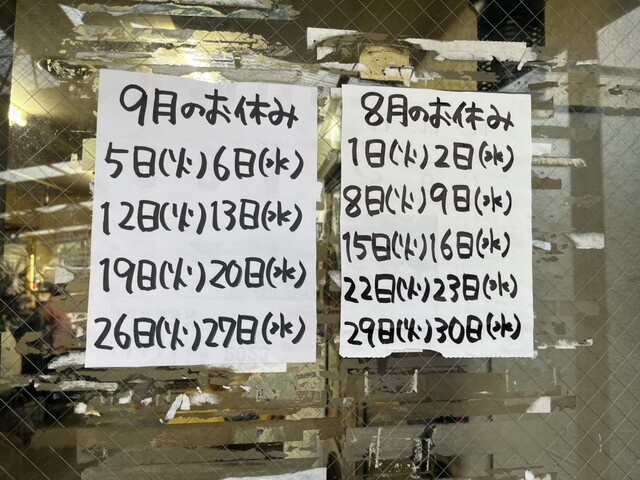 9月のお休み
5日(火)6日(水)
12日(火)13日(水)
19日(火)20日(水)
26日(火)27日(水)
8月のお休み
1日(火)2日(水)
8日(火)9日(水)
15日(火)16日(水)
22日(火)23日(水)
29日(火)30日(水)